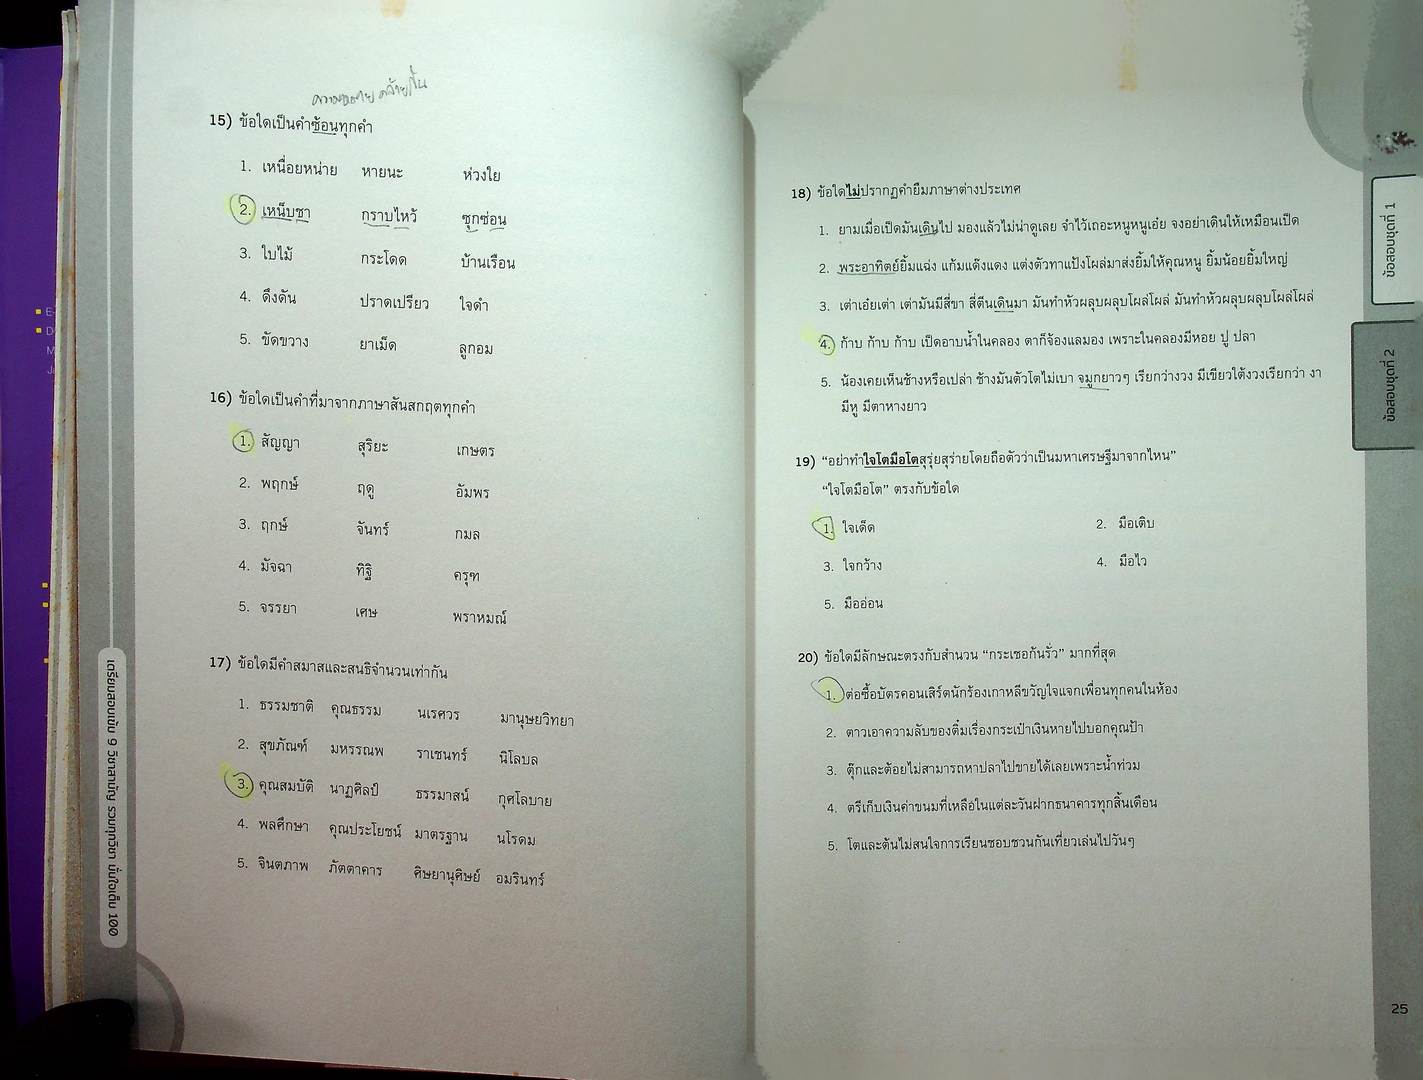 ความหมายคล้ายกัน
15) ข้อใดเป็นคำซ้อนทุกคำ
1. เหนื่อยหน่าย หายนะ ห่วงใย
2. เหน็บชา กราบไหว้ ซุกซ่อน
3. ใบไม้ กระโดด บ้านเรือน
4. ดึงดัน ปราดเปรียว ใจดำ
5. ขัดขวาง ยาเม็ด ลูกอม
16) ข้อใดเป็นคำที่มาจากภาษาสันสกฤตทุกคำ
1. สัญญา สุริยะ เกษตร
2. พฤกษ์ ฤดู อัมพร
3. ฤกษ์ จันทร์ กมล
4. มัจฉา ทิฐิ ครุฑ
5. จรรยา เศษ พราหมณ์
17) ข้อใดมีคำสมาสและสนธิจำนวนเท่ากัน
1. ธรรมชาติ คุณธรรม นเรศวร มานุษยวิทยา
2. สุขภัณฑ์ มหรรณพ ราเชนทร์ นิโลบล
3. คุณสมบัติ นาฏศิลป์ ธรรมาสน์ กุศโลบาย
4. พลศึกษา คุณประโยชน์ มาตรฐาน นโรดม
5. จินตภาพ ภัตตาคาร ศิษยานุศิษย์ อมรินทร์
เตรียมสอบเข้ม 9 วิชาสามัญ รวมทุกวิชา มั่นใจเต็ม 100
18) ข้อใดไม่ปรากฏคำยืมภาษาต่างประเทศ
1. ยามเมื่อเป็ดมันเดินไป มองแล้วไม่น่าดูเลย จำไว้เถอะหนูหนูเอ๋ย จงอย่าเดินให้เหมือนเป็ด
2. พระอาทิตย์ยิ้มแฉ่ง แก้มแด๊งแดง แต่งตัวทาแป้งโผล่มาส่งยิ้มให้คุณหนู ยิ้มน้อยยิ้มใหญ่
3. เต่าเอ๋ยเต่า เต่ามันมีสี่ขา สี่ตีนเดินมา มันทำหัวผลุบผลุบโผล่โผล่ มันทำหัวผลุบผลุบโผล่โผล่
4. ก้าบ ก้าบ ก้าบ เป็ดอาบน้ำในคลอง ตาก็จ้องแลมอง เพราะในคลองมีหอย ปู ปลา
5. น้องเคยเห็นช้างหรือเปล่า ช้างมันตัวโตไม่เบา จมูกยาวๆ เรียกว่างวง มีเขียวใต้งวงเรียกว่า งา
มีหู มีตาหางยาว
19) “อย่าทำใจโตมือโตสุรุ่ยสุร่ายโดยถือตัวว่าเป็นมหาเศรษฐีมาจากไหน”
“ใจโตมือโต” ตรงกับข้อใด
1. ใจเด็ด 2. มือเติบ
3. ใจกว้าง 4. มือไว
5. มืออ่อน
20) ข้อใดมีลักษณะตรงกับสำนวน “กระเชอก้นรั่ว” มากที่สุด
1. ต่อซื้อบัตรคอนเสิร์ตนักร้องเกาหลีขวัญใจแจกเพื่อนทุกคนในห้อง
2. ตาวเอาความลับของติ๋มเรื่องกระเป๋าเงินหายไปบอกคุณป้า
3. ตุ๊กและต้อยไม่สามารถหาปลาไปขายได้เลยเพราะน้ำท่วม
4. ตรีเก็บเงินค่าขนมที่เหลือในแต่ละวันฝากธนาคารทุกสิ้นเดือน
5. โตและต้นไม่สนใจการเรียนชอบชวนกันเที่ยวเล่นไปวันๆ
ข้อสอบชุดที่ 1
ข้อสอบชุดที่ 2
25